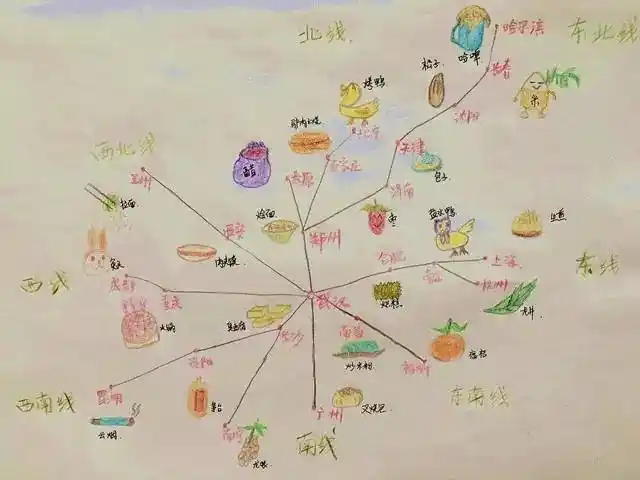 北线.
东北线
哈尔滨
哈啤
长春
松子.
烤鸭
米
沈阳
驴肉火烧.
北京
天津
石家庄
包子.
西北线
兰州
醋
太原
济南
拉面.
烩面.
枣
盐水鸭
生煎
西安
郑州
肉夹馍.
合肥
上海
东线
兔头
西线
成都
重庆
武汉
南京
杭州
龙井.
火锅
臭豆腐
长沙
南昌
炒米粉.
福州
福桔
贵阳
昆明
西南线
云烟.
茅台
广州
叉烧包
东南线
南宁
南线
龙眼.